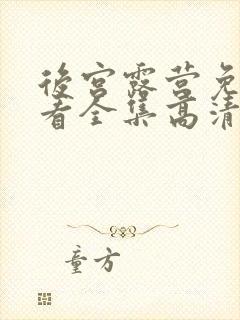 後宫露营免
看全集高清
童方